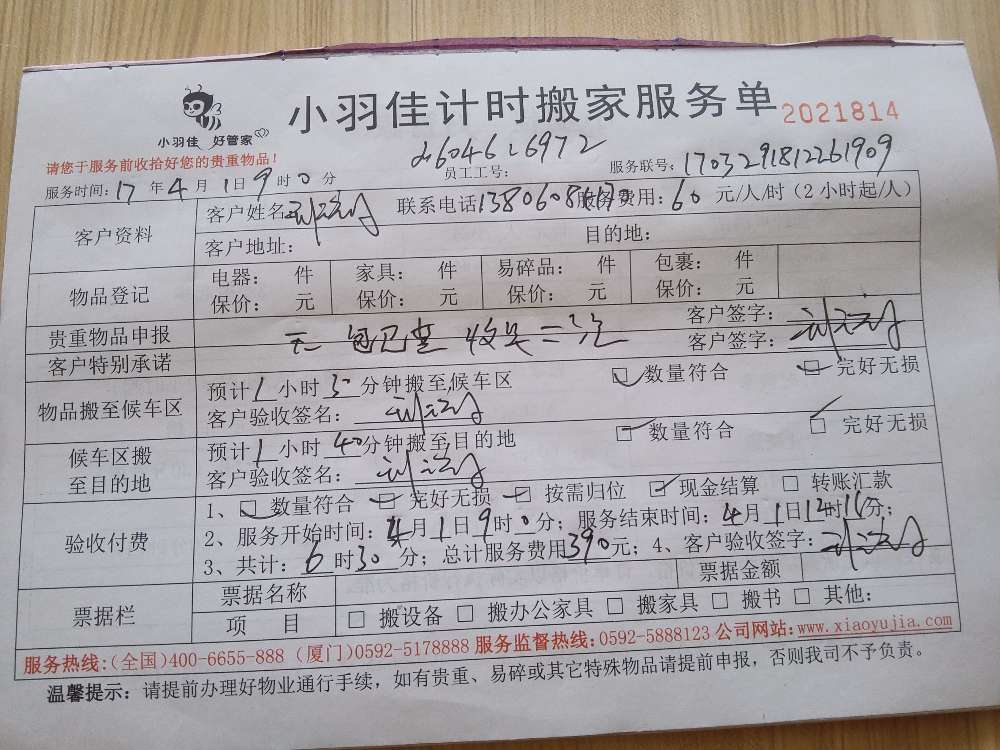 小羽佳 好管家
小羽佳计时搬家服务单 2021814
请您于服务前收拾好您的贵重物品!
员工工号: 服务联号: 1703291812261909
服务时间: 17 年 4 月 1 日 9 时 0 分
客户资料
客户姓名 联系电话 服务费用: 60 元/人/时 (2小时起/人)
客户地址: 目的地:
物品登记
电器: 件 家具: 件 易碎品: 件 包裹: 件
保价: 元 保价: 元 保价: 元 保价: 元
贵重物品申报 无 客户签字:
客户特别承诺 客户签字:
物品搬至候车区
预计 1 小时 30 分钟搬至候车区 数量符合 完好无损
客户验收签名:
候车区搬至目的地
预计 1 小时 40 分钟搬至目的地 数量符合 完好无损
客户验收签名:
验收付费
1、 数量符合 完好无损 按需归位 现金结算 转账汇款
2、服务开始时间: 4月1日9时0分; 服务结束时间: 4月1日12时16分;
3、共计: 6 时 30 分; 总计服务费用 390 元; 4、客户验收签字:
票据栏
票据名称 票据金额
项 目 搬设备 搬办公家具 搬家具 搬书 其他:
服务热线:(全国)400-6655-888 (厦门)0592-5178888 服务监督热线:0592-5888123 公司网站:www.xiaoyujia.com
温馨提示: 请提前办理好物业通行手续, 如有贵重、易碎或其它特殊物品请提前申报, 否则我司不予负责。